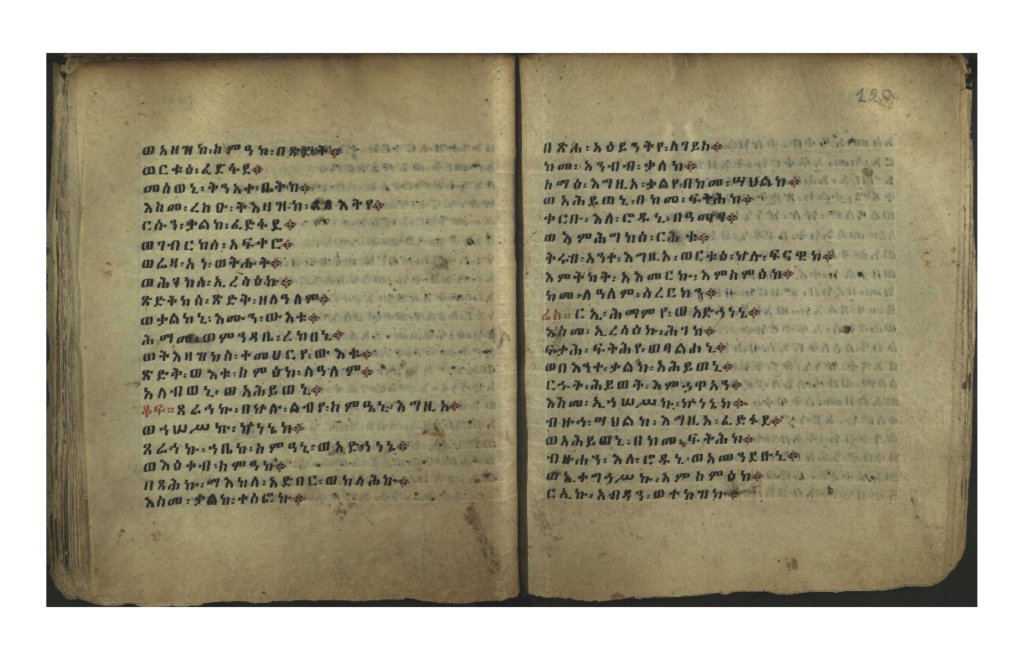 ወአዘዝከ፡ስምዓከ፡በጽድቅ፨
ወርቱዕ፡ፈድፋደ፨
መሰወኒ፡ቅንአተ፡ቤትከ፨
እስመ፡ረስዑ፡ትእዛዝከ፡ጸላእትየ፨
ርሱን፡ቃልከ፡ፈድፋደ፨
ወገብርከሰ፡አፍቀሮ፨
ወሬዛ፡አነ፡ወትሑት፨
ወሕገከሰ፡ኢረሳዕኩ፨
ጽድቅከሰ፡ጽድቅ፡ዘለዓለም፨
ወቃልከኒ፡እሙን፡ውእቱ፨
ሕማም፡ወምንዳቤ፡ረከበኒ፨
ወትእዛዝከሰ፡ተመሀርየ፡ውእቱ፨
ጽድቅ፡ውእቱ፡ስምዕከ፡ለዓለም፨
አለብወኒ፡ወአሕይወኒ፨
ቆፍ። ጸራኅኩ፡በኵሉ፡ልብየ፡ስምዓኒ፡እግዚአ፨
ወኀሠሥኩ፡ኵነኔከ፨
ጸራኅኩ፡ኀቤከ፡ስምዓኒ፡ወአድኅነኒ፨
ወእዕቀብ፡ስምዓከ፨
በጻሕኩ፡ማእከለ፡አድባር፡ወከላሕኩ፨
እስመ፡ቃልከ፡ተሰፎኩ፨
120
በጽሓ፡አዕይንትየ፡ለገይስ፨
ከመ፡አንብብ፡ቃለከ፨
ስማዕ፡እግዚአ፡ቃልየ፡በከመ፡ሣህልከ፨
ወአሕይወኒ፡በከመ፡ፍትሕከ፨
ቀርቡ፡እለ፡ሮዱኒ፡በዓመፃ፨
ወእምሕግከሰ፡ርሕቁ፨
ቅሩብ፡አንተ፡እግዚአ፡ወርቱዕ፡ኵሉ፡ፍናዊከ፨
እምትካት፡አእመርኩ፡እምስምዕከ፨
ከመ፡ለዓለም፡ሳረርከነ፨
ሬስ። ርኢ፡ሕማምየ፡ወአድኅነኒ፨
እስመ፡ኢረሳዕኩ፡ሕገከ፨
ፍታሕ፡ፍትሕየ፡ወባልሐኒ፨
ወበእንተ፡ቃልከ፡አሕይወኒ፨
ርኁቅ፡ሕይወት፡እምኃጥአን፨
እስመ፡ኢኀሠሡ፡ኵነኔከ፨
ብዙኅ፡ሣህልከ፡እግዚአ፡ፈድፋደ፨
ወአሕይወኒ፡በከመ፡ፍትሕከ፨
ብዙኃን፡እለ፡ሮዱኒ፡ወአመንደቡኒ፨
ወኢተግኅሥኩ፡እምስምዕከ፨
ርኢኩ፡አብዳነ፡ወተከዝኩ፨